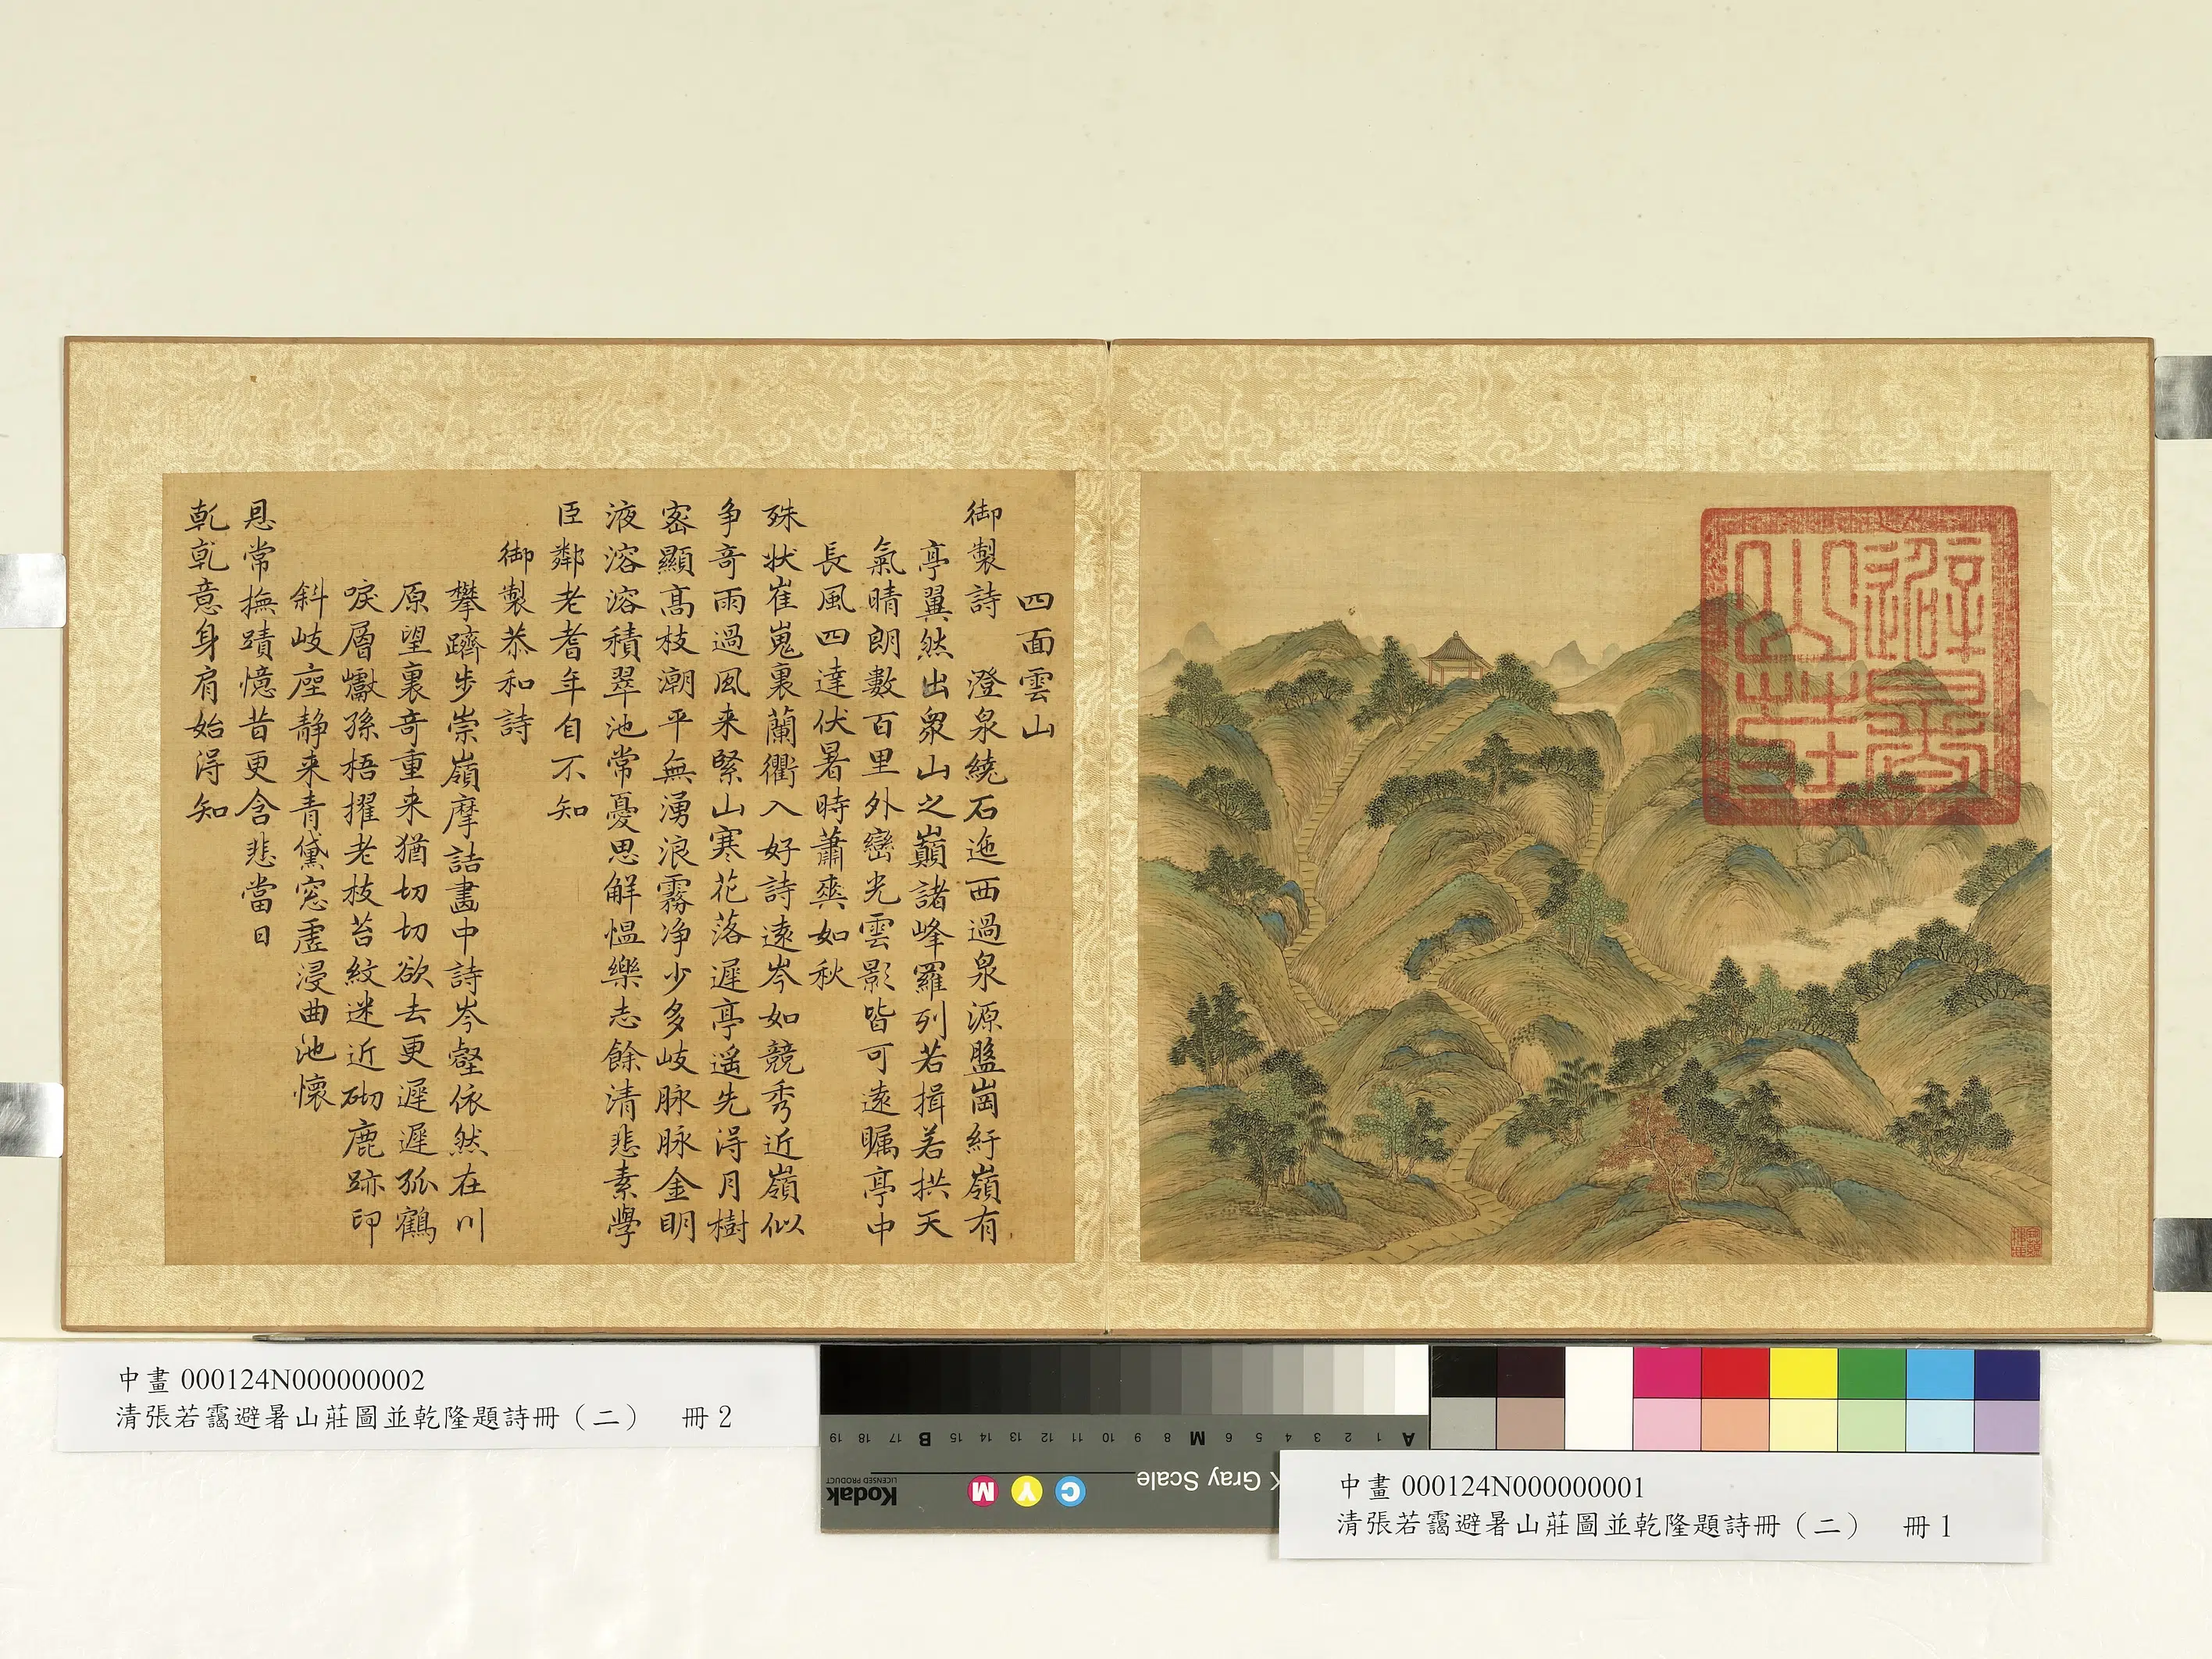 四面雲山
御製詩　澄泉繞石迤西過泉源盤崗紆嶺有
亭翼然出衆山之巔諸峰羅列若揖若拱天
氣晴朗數百里外巒光雲影皆可遠矚亭中
長風四達伏暑時蕭爽如秋
殊狀崔嵬裏蘭衢入好詩遠岑如競秀近嶺似
争奇雨過風来緊山寒花落遲亭遥先得月樹
密顯高枝潮平無湧浪霧净少多岐脉脉金明
液溶溶積翠池常憂思解愠樂志餘清悲素學
臣鄰老耆年自不知
御製恭和詩
攀躋步崇嶺摩詰畫中詩岑壑依然在川
原望裏奇重来猶切切欲去更遲遲孤鶴
唳層巘孫梧擢老枝苔紋迷近砌鹿跡印
斜岐座静来青黛窓虚浸曲池懷
恩常撫蹟憶昔更含悲當日
乾乾意身肩始得知
避暑
山莊
中畫 000124N000000002
清張若靄避暑山莊圖並乾隆題詩冊（二）　冊 2
19 18 17 B 16 15 14 13 12 11 10 9 8 M 7 6 5 4 3 2 1 A
Kodak
LICENSED PRODUCT
M Y C
Gray Scale
中畫 000124N000000001
清張若靄避暑山莊圖並乾隆題詩冊（二）　冊 1